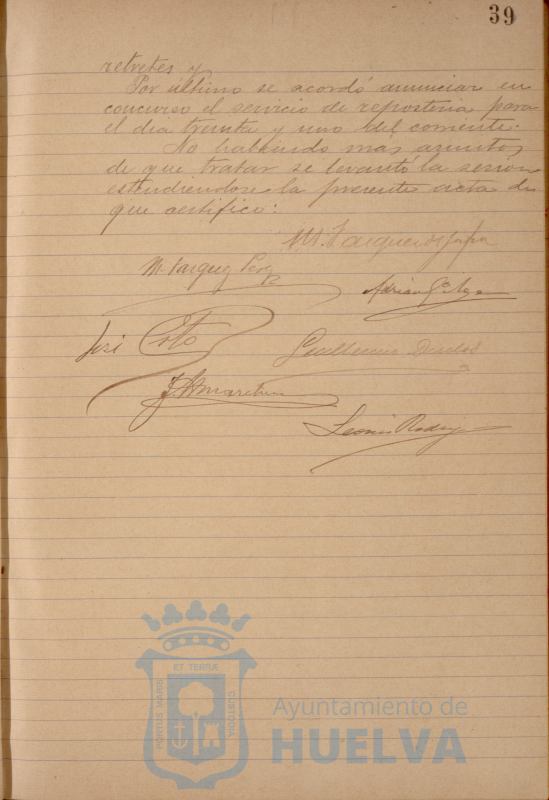 39
retretes y
Por último se acordó anunciar en
concurso el servicio de reposteria para
el dia treinta y uno del corriente.
No habiendo mas asuntos
de que tratar se levantó la sesion
estendiendose la presente acta de
que certifico:
M. Vazquez
M. Vazquez Perez
Adrian
José Coto
Guillermo
Leoncio Rodrig
ET TERRÆ
PORTUS MARIS
CUSTODIA
Ayuntamiento de
HUELVA